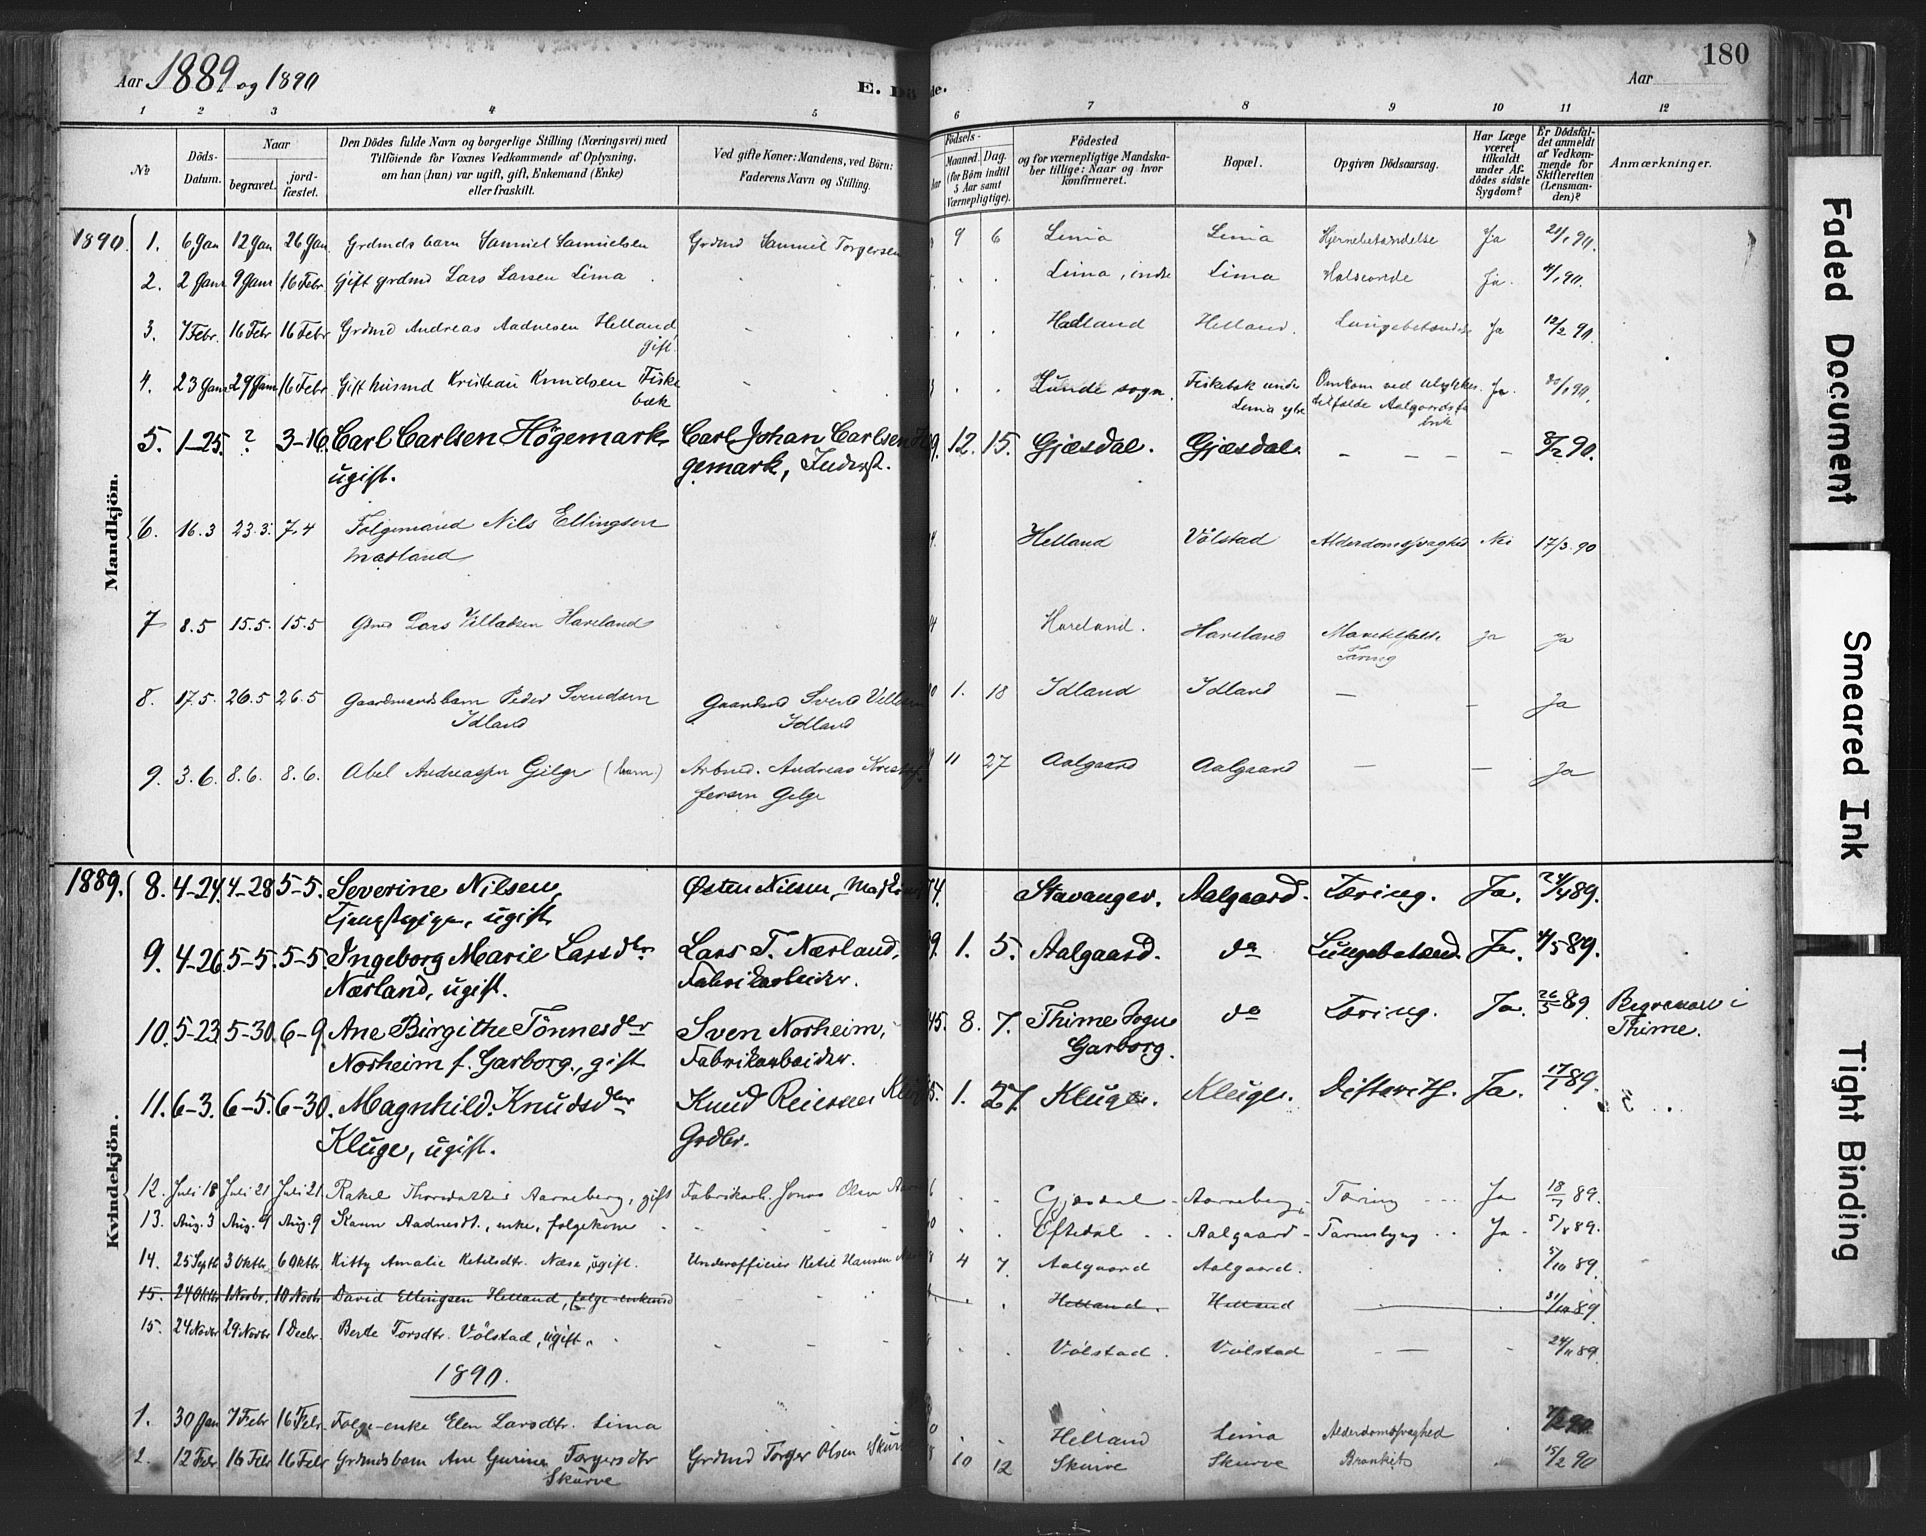 Aar 1889 og 1890
E. Dö de.
Aar
180
1 2 3 4 5 6 7 8 9 10 11 12
№
Döds-Datum.
Naar
begravet.
jord-fæstet.
Den Dödes fulde Navn og borgerlige Stilling (Næringsvei) med
Tilföiende for Voxnes Vedkommende af Oplysning,
om han (hun) var ugift, gift, Enkemand (Enke)
eller fraskilt.
Ved gifte Koner: Mandens, ved Börn:
Faderens Navn og Stilling.
Födsels-
Aar
Maaned. Dag.
(for Börn indtil
5 Aar samt
Værnepligtige).
Födested
og for værnepligtige Mandska-
ber tillige: Naar og hvor
konfirmeret.
Bopæl.
Opgiven Dödsaarsag.
Har Læge
været
tilkaldt
under Af-
dödes sidste
Sygdom?
Er Dödsfal-
det anmeldt
af Vedkom-
mende for
Skifteretten
(Lensman-
den)?
Anmærkninger.
Mandkjön.
1890. 1. 6 Jan 12 Jan 26 Jan Grdmds barn Samuel Samuelsen Grdmd Samuel Torgersen 9 6 Lima Lima Hjernebetændelse Ja 21/1 90.
2. 2 Jan 9 Jan 16 Febr Gift grdmd Lars Larsen Lima Lima, indre Lima Ja. 4/1 90.
3. 7 Febr 16 Febr 16 Febr Grdmd Andreas Aadnesen Helland Helland Helland. Lungebetændelse Ja 12/2 90.
gift.
4. 23 Jan 29 Jan 16 Febr Gift husmd Kristian Knudsen Fiske Lunde sogn. Fiskebæk under Omkom ved ulykkes Ja. /1 90.
bæk Lima tilfælde Aalgaards fa
brik
5. 1-25. ? 3-16. Carl Carlsen Högemark Carl Johan Carlsen Hö 9. 12. 15. Gjæsdal. Gjæsdal. - - - - 8/2 90.
ugift. gemark, Inderst.
6. 16.3 23.3. 7.4 Folgemand Nils Ellingsen 4. Helland Völstad Alderdomssvaghed Nei 17/3 90
Mæland
7 8.5 15.5. 15.5 Lars Haveland 4 Haveland. Haveland ja Ja
Tæring
8. 17.5. 26.5 26.5 Gaardmandsbarn Peder Svendsen Gaardmd Svend 0 1. 18 Idland Idland - - Ja
Idland Idland
9. 3.6. 8.6. 8.6. Abel Andreassen Gilge (barn) Arbmd. Andreas Kristof 11 27 Aalgaard Aalgaard - - Ja
fersen Gilge
Kvindekjön.
1889. 8. 4-24. 4-28 5-5. Severine Nilsen, Østen Nilsen, 74. Stavanger. Aalgaard. Tæring. Ja. 24/4 89.
Tjenestepige, ugift
9. 4-26 5-5. 5-5. Ingeborg Marie Larsdtr Lars T. Nærland, 9. 1. 5. Aalgaard. do Lungebetænd. Ja. 4/5 89.
Nærland, ugift. Fabrikarbeider.
10. 5-23 5-30. 6-9. Ane Birgithe Tönnesdtr Sven Norheim, 45. 8. 7. Thime Sogn do Tæring. Ja. 26/5 89. Begraven i
Norheim f. Garborg, gift Fabrikarbeider. Garborg. Thime.
11. 6-3. 6-5. 6-30. Magnhild Knudsdtr Knud Reiersen 5. 1. 27. Kluge. Kluge. Difterith. Ja. 17/7 89.
Kluge, ugift. Grdbr.
12. Juli 18 Juli 21 Juli 21. Rakel Aarneberg, gift Fabrikarb. Jonas Olsen 6 Gjesdal Aarneberg Tæring Ja 18/7 89.
13. Aug. 3 Aug. 9 Aug. 9 Karen Aadnesdt., enke, folgekone 0 Oftedal Aalgaard Ja 5/8 89.
14. 25 Septb 3 Oktbr 6 Oktbr. Kitty Amalie Ketilsdtr. Næse, ugift. Underofficier Ketil Hansen 4 7. Aalgaard Aalgaard. 5/10 89.
15. 24 Oktbr 1 Novbr. 10 Novbr David Ellingsen Helland, folge-enkemd Helland. Helland 31/10 89.
15. 24 Novbr 29 Novbr 1 Decbr. Berte Torsdtr. Völstad, ugift. Völstad. Völstad - 24/11 89.
1890.
1. 30 Jan 7 Febr 16 Febr. Folge-enke Elen Larsdtr. Lima 0 Helland Lima Alderdomssvaghed /2 90.
2. 12 Febr 16 Febr 16 Febr Grdmdsbarn Ane Gurine Torgersdtr Grdmd Torger Olsen Skurve 10 12 Skurve Skurve Bronkit 15/2 90
Skurve
Faded Document
Smeared Ink
Tight Binding